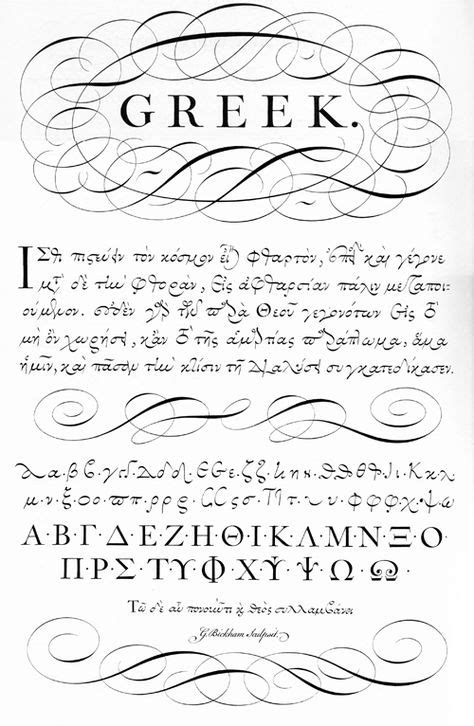 GREEK.
Ισθι πιστεύειν τὸν κόσμον εἶναι φθαρτὸν, καὶ γέγονε
μετὰ δὲ τὴν φθορὰν, εἰς ἀφθαρσίαν πάλιν μεταποι-
ούμενον. οὐδὲν γὰρ τῶν παρὰ Θεοῦ γεγονότων εἰς τὸ
μὴ ὂν χωρήσει, κἂν τῆς ἁμαρτίας παράπτωμα, ἅμα
ἡμῖν, καὶ πᾶσαν τὴν κτίσιν τῇ διαλύσει συγκατεδίκασεν.
α·β ϐ·γ·δ·ε·ζ·η·ϑ θ·ι·κ·λ
μ·ν·ξ·ο·ϖ π·ρ ρ·ς σ·τ·υ·φ·χ·ψ·ω
Α·Β·Γ·Δ·Ε·Ζ·Η·Θ·Ι·Κ·Λ·Μ·Ν·Ξ·Ο·
Π·Ρ·Σ·Τ·Υ·Φ·Χ·Ψ·Ω
πονοῦντι θεὸς συλλαμβάνει
G. Bickham Sculpsit.